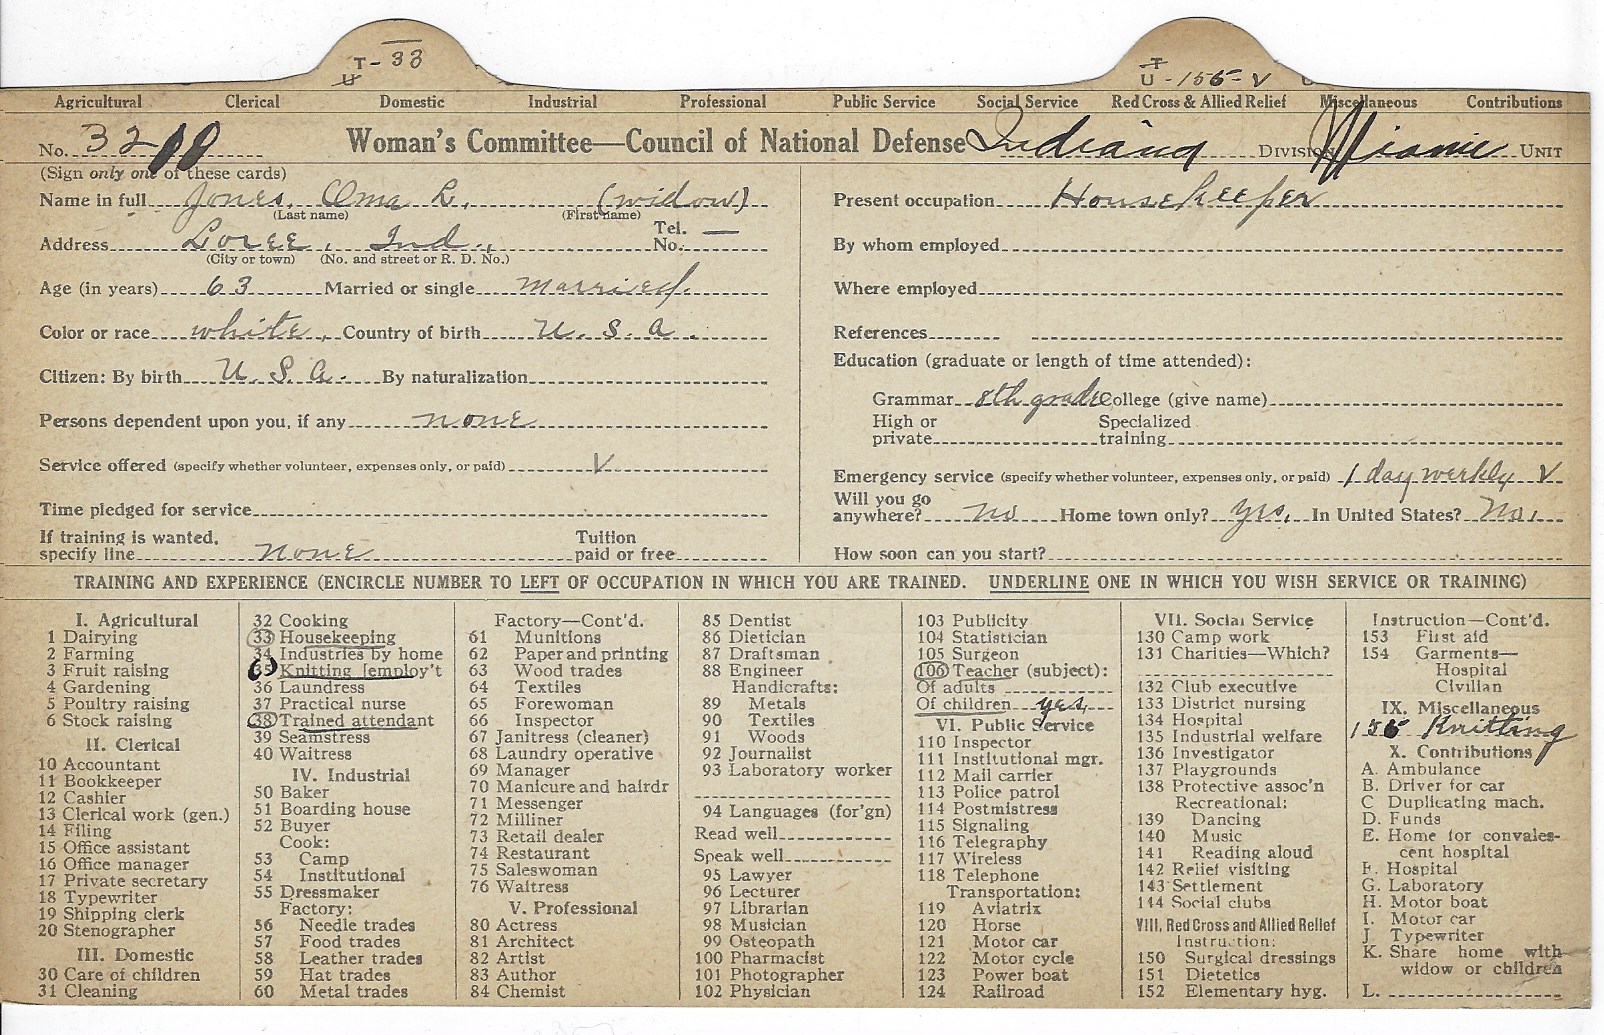 T - 33
U
T
U - 155 - V
Agricultural Clerical Domestic Industrial Professional Public Service Social Service Red Cross & Allied Relief Miscellaneous Contributions
No. 3210 Woman's Committee—Council of National Defense Indiana Division Miami Unit
(Sign only one of these cards)
Name in full Jones, Oma L. (widow)
(Last name) (First name)
Address Loree, Ind., Tel. No. —
(City or town) (No. and street or R. D. No.)
Age (in years) 63 Married or single married.
Color or race white, Country of birth U. S. a.
Citizen: By birth U. S. a. By naturalization
Persons dependent upon you, if any none
Service offered (specify whether volunteer, expenses only, or paid) V
Time pledged for service
If training is wanted,
specify line none Tuition paid or free
Present occupation Housekeeper
By whom employed
Where employed
References
Education (graduate or length of time attended):
Grammar 8th grade College (give name)
High or private Specialized training
Emergency service (specify whether volunteer, expenses only, or paid) 1 day weekly V
Will you go anywhere? no Home town only? yes, In United States? No,
How soon can you start?
TRAINING AND EXPERIENCE (ENCIRCLE NUMBER TO LEFT OF OCCUPATION IN WHICH YOU ARE TRAINED. UNDERLINE ONE IN WHICH YOU WISH SERVICE OR TRAINING)
I. Agricultural
1 Dairying
2 Farming
3 Fruit raising
4 Gardening
5 Poultry raising
6 Stock raising
II. Clerical
10 Accountant
11 Bookkeeper
12 Cashier
13 Clerical work (gen.)
14 Filing
15 Office assistant
16 Office manager
17 Private secretary
18 Typewriter
19 Shipping clerk
20 Stenographer
III. Domestic
30 Care of children
31 Cleaning
32 Cooking
33 Housekeeping
34 Industries by home
35 Knitting [employ't
36 Laundress
37 Practical nurse
38 Trained attendant
39 Seamstress
40 Waitress
IV. Industrial
50 Baker
51 Boarding house
52 Buyer
Cook:
53 Camp
54 Institutional
55 Dressmaker
Factory:
56 Needle trades
57 Food trades
58 Leather trades
59 Hat trades
60 Metal trades
Factory—Cont'd.
61 Munitions
62 Paper and printing
63 Wood trades
64 Textiles
65 Forewoman
66 Inspector
67 Janitress (cleaner)
68 Laundry operative
69 Manager
70 Manicure and hairdr
71 Messenger
72 Milliner
73 Retail dealer
74 Restaurant
75 Saleswoman
76 Waitress
V. Professional
80 Actress
81 Architect
82 Artist
83 Author
84 Chemist
85 Dentist
86 Dietician
87 Draftsman
88 Engineer
Handicrafts:
89 Metals
90 Textiles
91 Woods
92 Journalist
93 Laboratory worker
94 Languages (for'gn)
Read well
Speak well
95 Lawyer
96 Lecturer
97 Librarian
98 Musician
99 Osteopath
100 Pharmacist
101 Photographer
102 Physician
103 Publicity
104 Statistician
105 Surgeon
106 Teacher (subject):
Of adults
Of children yes
VI. Public Service
110 Inspector
111 Institutional mgr.
112 Mail carrier
113 Police patrol
114 Postmistress
115 Signaling
116 Telegraphy
117 Wireless
118 Telephone
Transportation:
119 Aviatrix
120 Horse
121 Motor car
122 Motor cycle
123 Power boat
124 Railroad
VII. Social Service
130 Camp work
131 Charities—Which?
132 Club executive
133 District nursing
134 Hospital
135 Industrial welfare
136 Investigator
137 Playgrounds
138 Protective assoc'n
Recreational:
139 Dancing
140 Music
141 Reading aloud
142 Relief visiting
143 Settlement
144 Social clubs
VIII. Red Cross and Allied Relief
Instruction:
150 Surgical dressings
151 Dietetics
152 Elementary hyg.
Instruction—Cont'd.
153 First aid
154 Garments—
Hospital
Civilian
IX. Miscellaneous
155 Knitting
X. Contributions
A. Ambulance
B. Driver for car
C Duplicating mach.
D. Funds
E. Home for convales-
cent hospital
F. Hospital
G. Laboratory
H. Motor boat
I. Motor car
J. Typewriter
K. Share home with
widow or children
L.